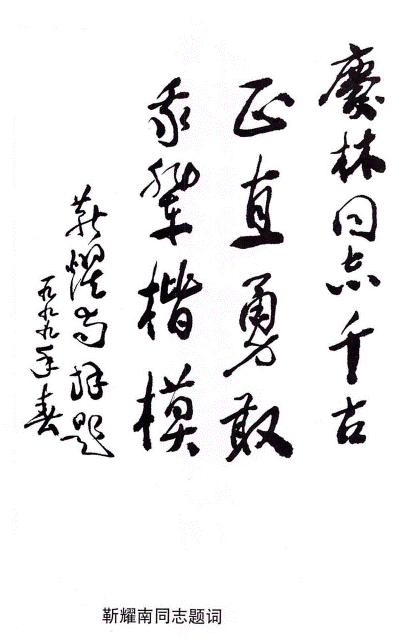 慶林同志千古
正直勇敢
我輩楷模
靳燿南拜题
一九九九年春
靳耀南同志题词